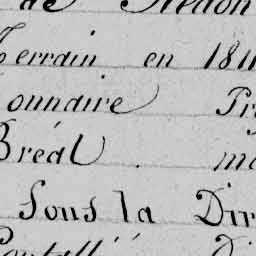 de Redon
Terrain en 184
onnaire Pr
Bréal . m
Sous la Dir